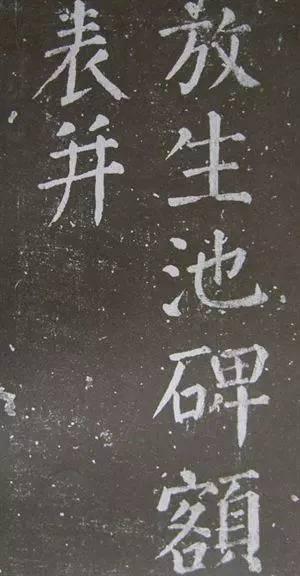 放生池碑額
表并